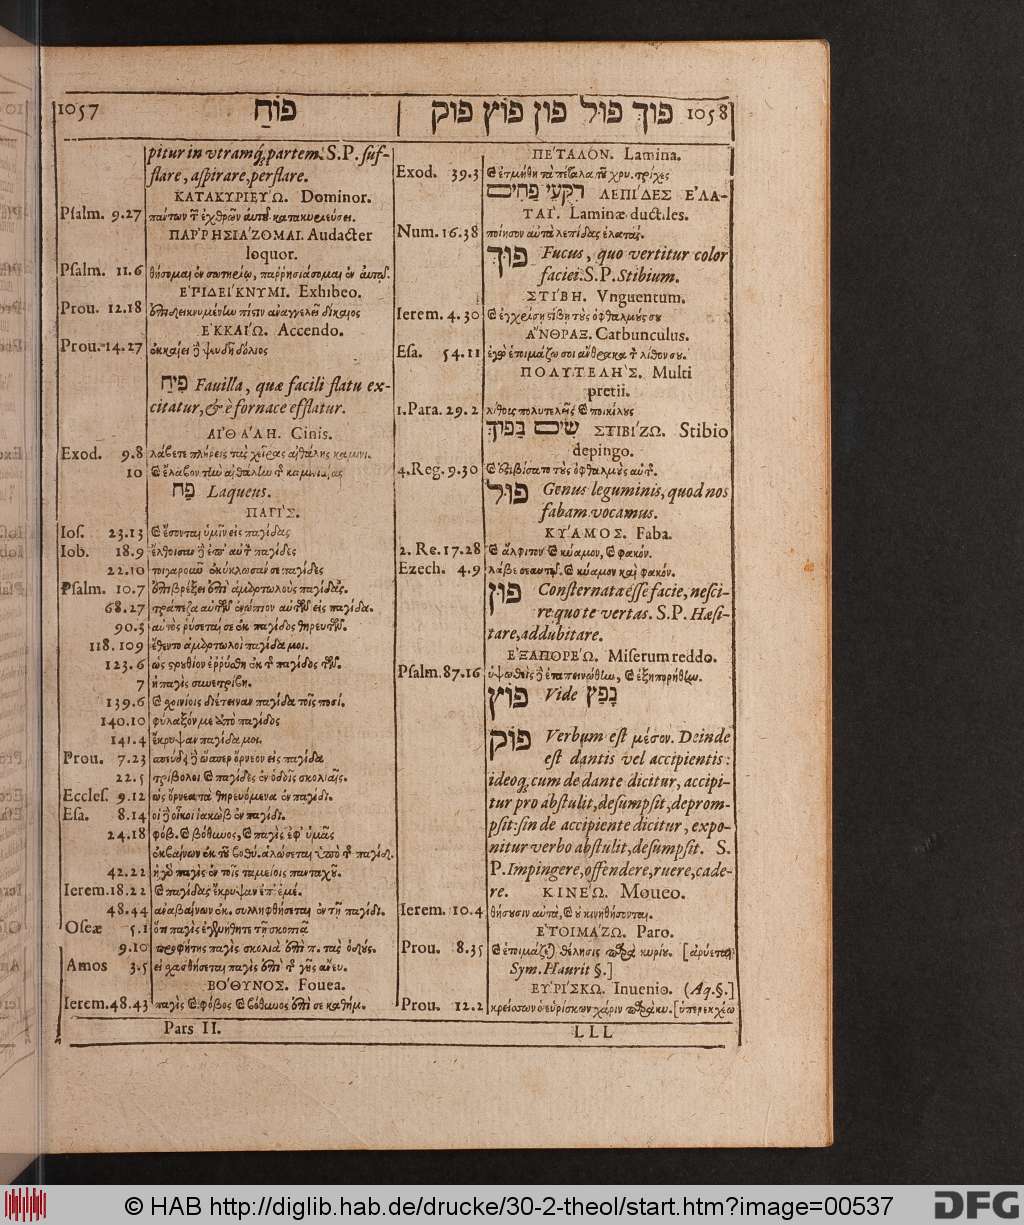 1057 פוֹחַ
pitur in vtramq́; partem. S.P. ſuf-
flare, aſpirare, perflare.
ΚΑΤΑΚΥΡΙΕΎΩ. Dominor.
Pſalm. 9.27 πάντων τῶν ἐχθρῶν αὐτοῦ κατακυριεύσει.
ΠΑΡ̓ῬΗΣΙΆΖΟΜΑΙ. Audacter
loquor.
Pſalm. 11.6 θήσομαι ἐν σωτηρίῳ, παρρησιάσομαι ἐν αὐτῷ.
ἘΠΙΔΕΊΚΝΥΜΙ. Exhibeo.
Prou. 12.18 ἐπιδεικνυμένην πίστιν ἀναγγελεῖ δίκαιος
ἘΚΚΑΊΩ. Accendo.
Prou. 14.27 ἐκκαίει δὲ ψευδῆ δόλιος
פִּיחַ Fauilla, quæ facili flatu ex-
citatur, & è fornace efflatur.
ΑἸΘΆΛΗ. Cinis.
Exod. 9.8 λάβετε πλήρεις τὰς χεῖρας αἰθάλης καμινι.
10 καὶ ἔλαβον τὴν αἰθάλην τῆς καμιναίας
פַּח Laqueus.
ΠΑΓΊΣ.
Ioſ. 23.13 καὶ ἔσονται ὑμῖν εἰς παγίδας
Iob. 18.9 ἔλθοισαν δὲ ἐπ' αὐτὸν παγίδες
22.10 τοιγαροῦν ἐκύκλωσάν σε παγίδες
Pſalm. 10.7 ἐπιβρέξει ἐπὶ ἁμαρτωλοὺς παγίδας.
68.27 τράπεζα αὐτῶν ἐνώπιον αὐτῶν εἰς παγίδα.
90.3 αὐτὸς ῥύσεταί σε ἐκ παγίδος θηρευτῶν.
118.109 ἔθεντο ἁμαρτωλοὶ παγίδα μοι.
123.6 ὡς στρουθίον ἐῤῥύσθη ἐκ τῆς παγίδος τῶν.
7 ἡ παγὶς συνετρίβη.
139.6 καὶ σχοινίοις διέτειναν παγίδα τοῖς ποσί.
140.10 φύλαξόν με ἀπὸ παγίδος
141.4 ἔκρυψαν παγίδα μοι.
Prou. 7.23 σπεύδει δὲ ὥσπερ ὄρνεον εἰς παγίδα
22.5 τρίβολοι καὶ παγίδες ἐν ὁδοῖς σκολιαῖς.
Eccleſ. 9.12 ὡς ὄρνεα τὰ θηρευόμενα ἐν παγίδι.
Eſa. 8.14 οἱ δὲ οἶκοι ἰακὼβ ἐν παγίδι.
24.18 φόβ. καὶ βόθυνος, καὶ παγὶς ἐφ' ὑμᾶς
ἐκβαίνων ἐκ τοῦ βοθύ. ἁλώσεται ὑπὸ τῆς παγίδ.
42.22 ἡ γὰρ παγὶς ἐν τοῖς ταμείοις πανταχοῦ.
Ierem. 18.22 καὶ παγίδας ἔκρυψαν ἐπ' ἐμέ.
48.44 ἀναβαίνων ἐκ. συλληφθήσεται ἐν τῇ παγίδι.
Oſeæ 5.1 ὅτι παγὶς ἐγενήθητε τῇ σκοπιᾷ
9.10 προφήτης παγὶς σκολιὰ ἐπὶ π. τὰς ὁδούς.
Amos 3.5 εἰ σχασθήσεται παγὶς ἐπὶ τῆς γῆς ἄνευ.
ΒΌΘΥΝΟΣ. Fouea.
Ierem. 48.43 παγὶς καὶ φόβος καὶ βόθυνος ἐπὶ σε καθήμ.
Pars II.
פוּךְ פוּל פון פוֹץ פוק 1058
ΠΈΤΑΛΟΝ. Lamina.
Exod. 39.3 καὶ ἐτμήθη τὰ πέταλα τοῦ χρυ. τρίχες
רִקֻּעֵי פַחִים ΛΕΠΊΔΕΣ ἘΛΑ-
ΤΑΊ. Laminæ ductiles.
Num. 16.38 ποίησον αὐτὰ λεπίδας ἐλατάς.
פּוּךְ Fucus, quo vertitur color
faciei. S.P. Stibium.
ΣΤΊΒΗ. Vnguentum.
Ierem. 4.30 καὶ ἐγχρίσῃ στίβῃ τοὺς ὀφθαλμούς σου
ἌΝΘΡΑΞ. Carbunculus.
Eſa. 54.11 ἐγὼ ἑτοιμάζω σοι ἄνθρακα τὸν λίθον σου.
ΠΟΛΥΤΕΛΉΣ. Multi
pretii.
1. Para. 29.2 λίθοις πολυτελεῖς καὶ ποικίλους
שִׂים בַּפּוּךְ ΣΤΙΒΊΖΩ. Stibio
depingo.
4. Reg. 9.30 καὶ ἐστιβίσατο τοὺς ὀφθαλμοὺς αὐτῆς.
פּוּל Genus leguminis, quod nos
fabam vocamus.
ΚΎΑΜΟΣ. Faba.
2. Re. 17.28 καὶ ἄλφιτον καὶ κύαμον, καὶ φακόν.
Ezech. 4.9 λάβε σεαυτῷ. καὶ κύαμον καὶ φακόν.
פּוּן Conſternata eſſe facie, neſci-
re quo te vertas. S.P. Hæſi-
tare, addubitare.
ἘΞΑΠΟΡΈΩ. Miſerum reddo.
Pſalm. 87.16 ὑψωθεὶς δὲ ἐταπεινώθην, καὶ ἐξηπορήθην.
פּוֹץ Vide נָפַץ
פּוּק Verbum eſt μέσον. Deinde
eſt dantis vel accipientis:
ideoq́; cum de dante dicitur, accipi-
tur pro abſtulit, deſumpſit, deprom-
pſit: ſin de accipiente dicitur, expo-
nitur verbo abſtulit, deſumpſit. S.
P. Impingere, offendere, ruere, cade-
re. ΚΙΝΈΩ. Moueo.
Ierem. 10.4 θήσουσιν αὐτὰ, καὶ οὐ κινηθήσονται.
ἙΤΟΙΜΆΖΩ. Paro.
Prou. 8.35 καὶ ἑτοιμάζεται θέλησις παρὰ κυρίου. [ἀρύεται
Sym. Haurit §.]
ΕὙΡΊΣΚΩ. Inuenio. (Aq. §.]
Prou. 12.2 κρείσσων ὁ εὑρίσκων χάριν παρὰ κυ. [ὑπερεκχέω
LLL
© HAB http://diglib.hab.de/drucke/30-2-theol/start.htm?image=00537
DFG